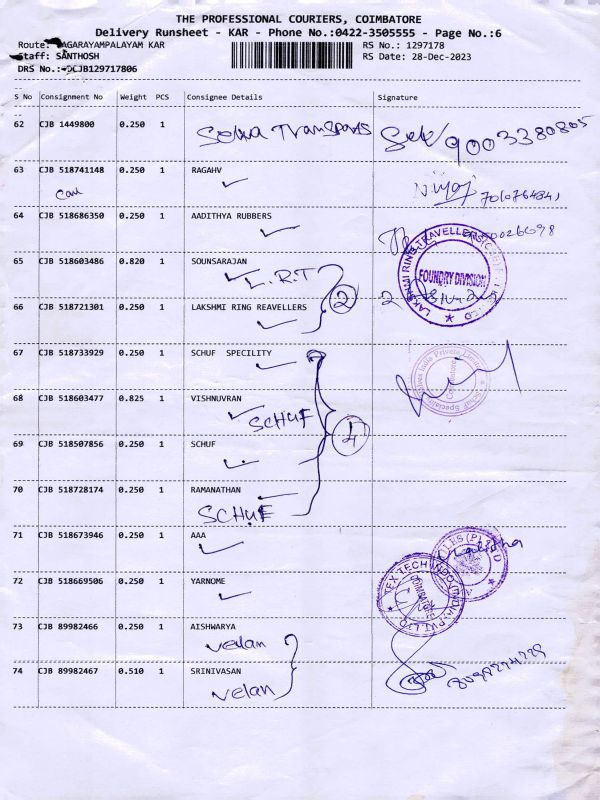 THE PROFESSIONAL COURIERS, COIMBATORE
Delivery Runsheet - KAR - Phone No.:0422-3505555 - Page No.:6
Route: AGARAYAMPALAYAM KAR RS No.: 1297178
Staff: SANTHOSH RS Date: 28-Dec-2023
DRS No.: DCJB129717806
S No Consignment No Weight PCS Consignee Details Signature
62 CJB 1449800 0.250 1 Selva Transports 9003380805
63 CJB 518741148 0.250 1 RAGAHV
7010764841
64 CJB 518686350 0.250 1 AADITHYA RUBBERS
65 CJB 518603486 0.820 1 SOUNSARAJAN
L.R.T
2
LAKSHMI RING TRAVELLERS
FOUNDRY DIVISION
66 CJB 518721301 0.250 1 LAKSHMI RING REAVELLERS
67 CJB 518733929 0.250 1 SCHUF SPECILITY
68 CJB 518603477 0.825 1 VISHNUVRAN
SCHUF
4
69 CJB 518507856 0.250 1 SCHUF
70 CJB 518728174 0.250 1 RAMANATHAN
SCHUF
71 CJB 518673946 0.250 1 AAA
72 CJB 518669506 0.250 1 YARNOME
TEX TECH INDO (INDIA) PVT LTD
73 CJB 89982466 0.250 1 AISHWARYA
velan
74 CJB 89982467 0.510 1 SRINIVASAN
velan